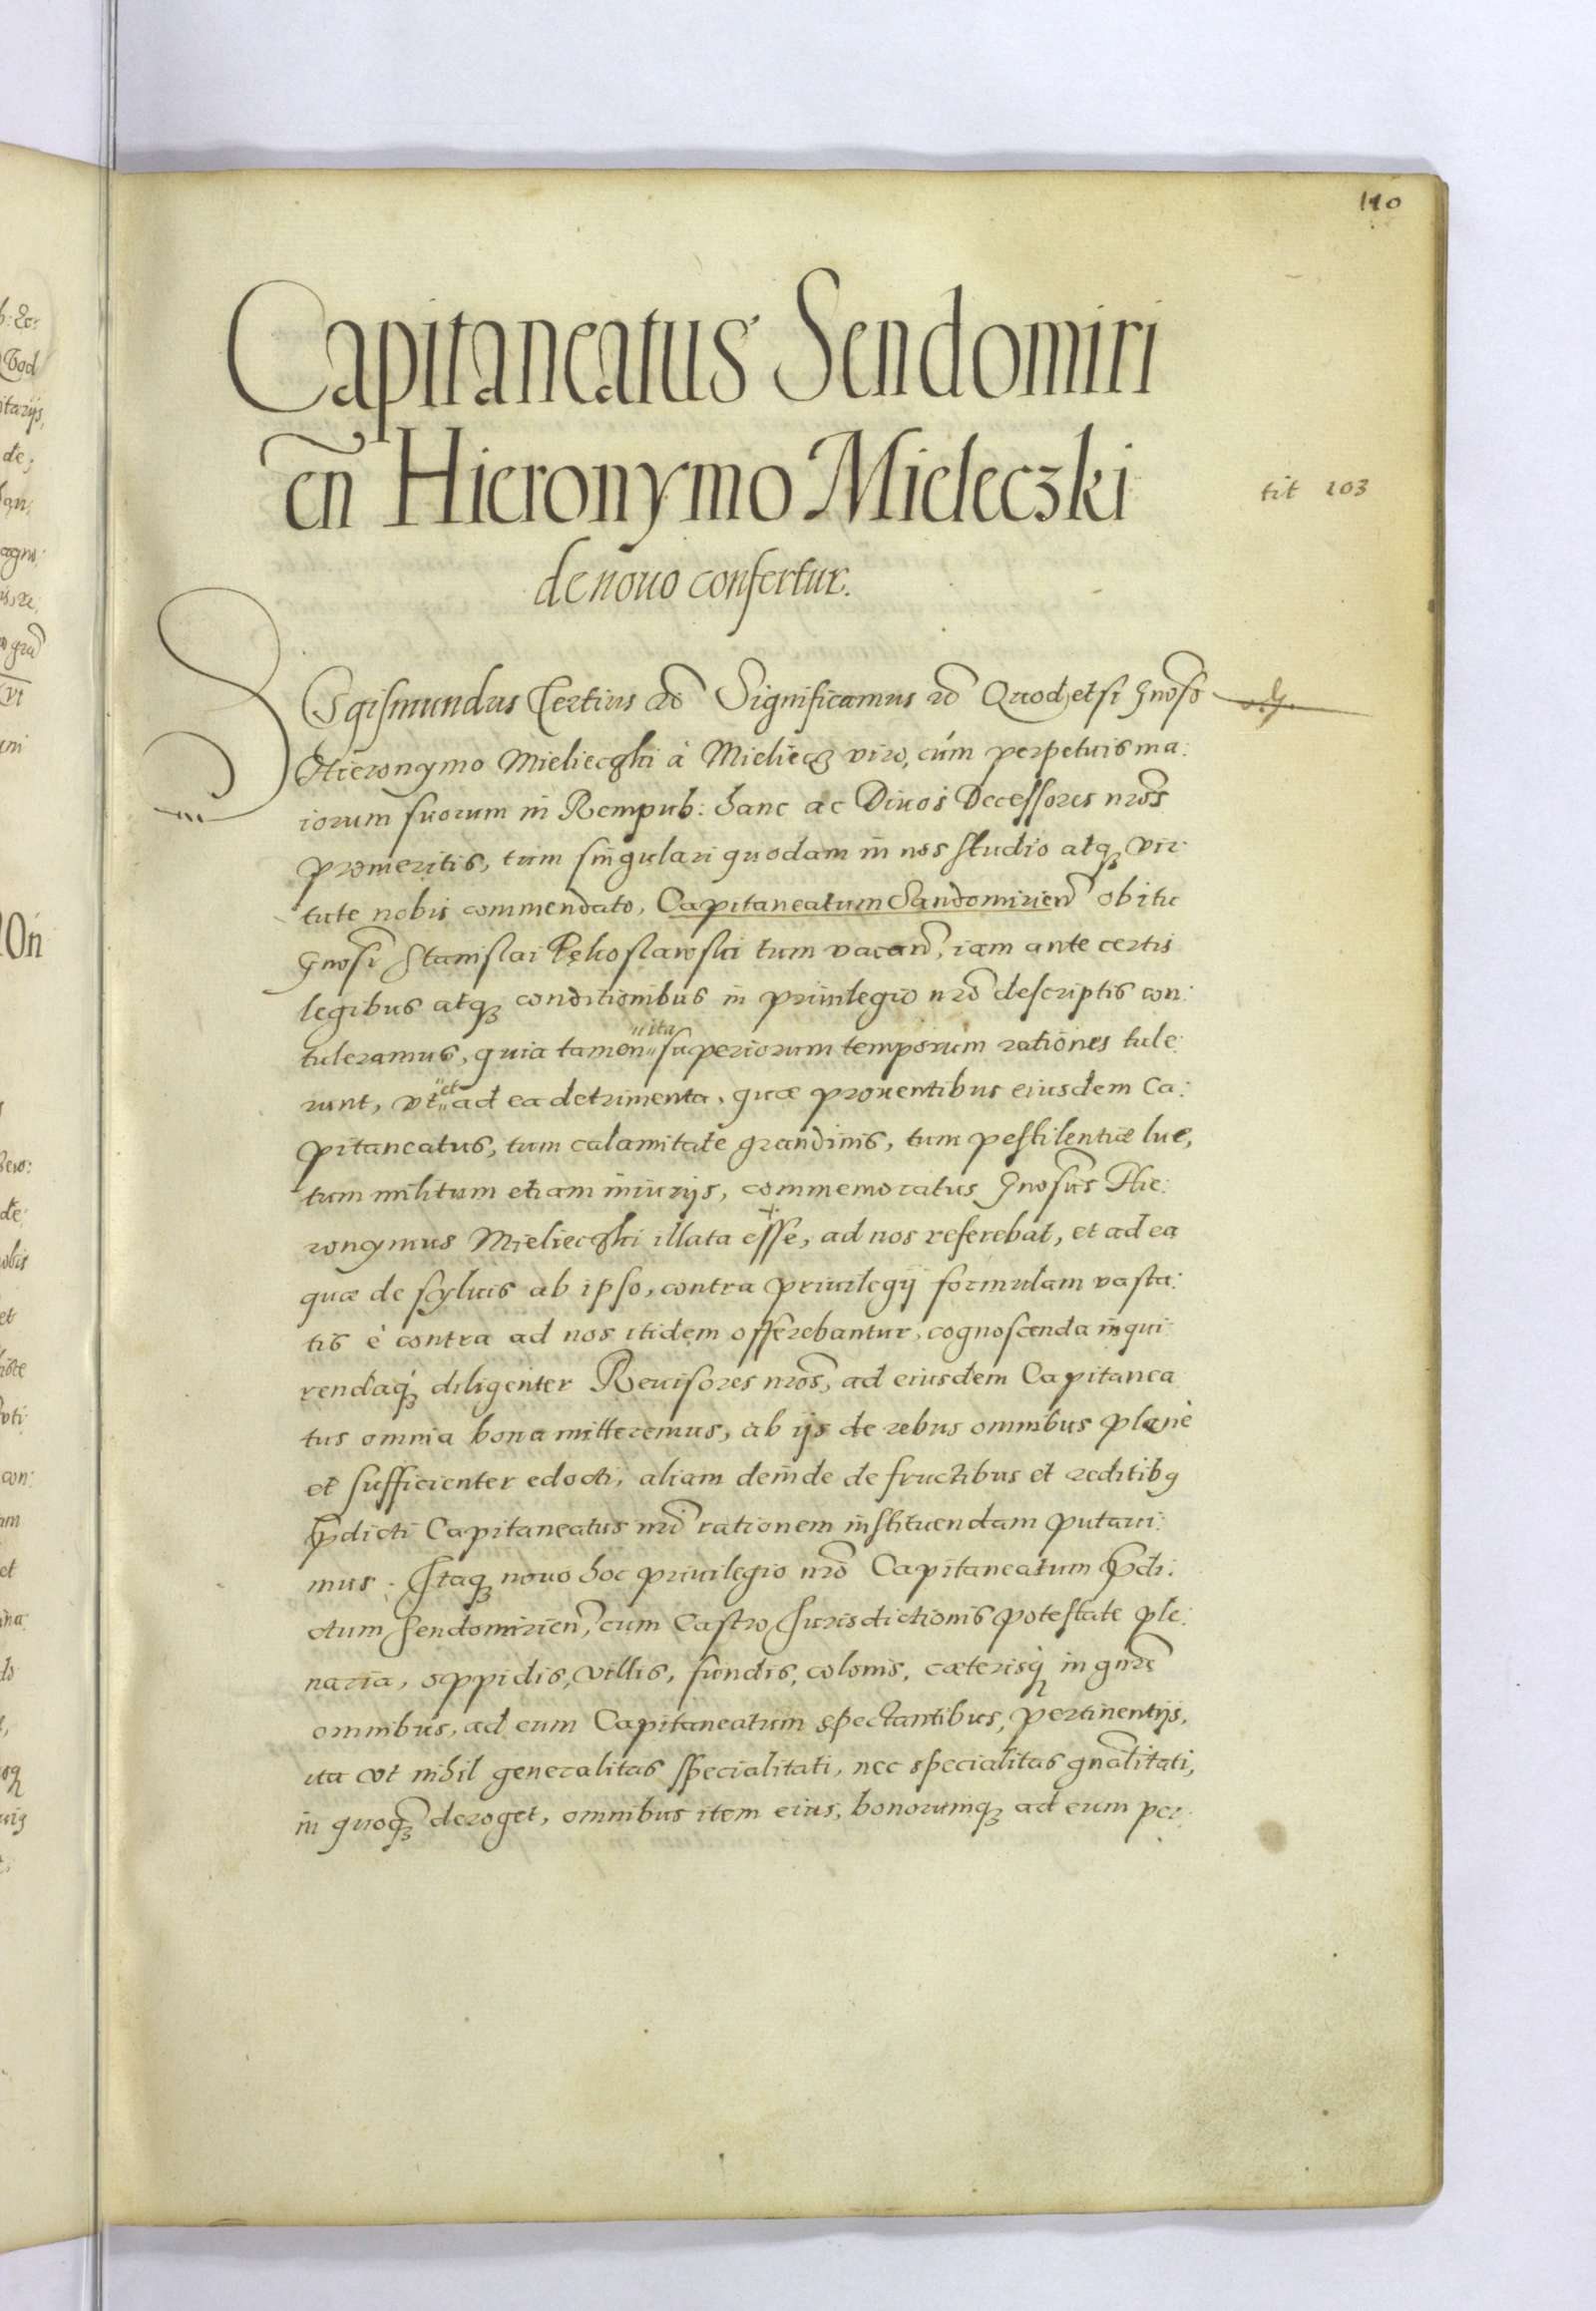 110
Capitaneatus Sendomiri
en̄ Hieronymo Mieleczki
tit 103
de nouo confertur.
Sigismundus Tertius etc̄ Significamus etc̄ Quod etsi Gn̄oso
Hieronymo Mielieczki à Mieliecz viro, cúm perpetuis ma:
iorum suorum in Rempub: hanc ac Diuos Decessores nr̄os
promeritis, tum singulari quodam in nos studio atq₃ vir
tute nobis commendato, Capitaneatum Sandomirien̄ obitu
Gn̄osi Stanislai Pękoslawski tum vacan̄, iam ante certis
legibus atq₃ conditionibus in priuilegio nr̄o descriptis con:
tuleramus, quia tamen "ita" superiorum temporum rationes tule:
runt, vt "et" ad ea detrimenta, quæ prouentibus eiusdem Ca:
pitaneatus, tum calamitate grandinis, tum pestilentiæ lue,
tum militum etiam iniurijs, commemoratus Gn̄osus Hie:
ronymus Mielieczki illata esse, ad nos referebat, et ad ea
quæ de syluis ab ipso, contra priuilegij formulam vasta:
tis è contra ad nos itidem offerebantur, cognoscenda inqui
rendaq₃ diligenter Reuisores nr̄os, ad eiusdem Capitanea
tus omnia bona mitteremus, ab ijs de rebus omnibus planè
et sufficienter edocti, aliam deinde de fructibus et reditibꝯ
p̄dicti Capitaneatus nr̄i rationem instituendam putaui:
mus. Itaq₃ nouo hoc priuilegio nr̄o Capitaneatum p̄di:
ctum Sendomirien̄, cum Castro, Iurisdictionis potestate ple:
naria, oppidis, villis, fundis, colonis, cæterisq₃ in gn̄re
omnibus, ad eum Capitaneatum spectantibus, pertinentijs,
ita vt nihil generalitas specialitati, nec specialitas gn̄alitati,
in quoq₃ deroget, omnibus item eius, bonorumq₃ ad eum per: